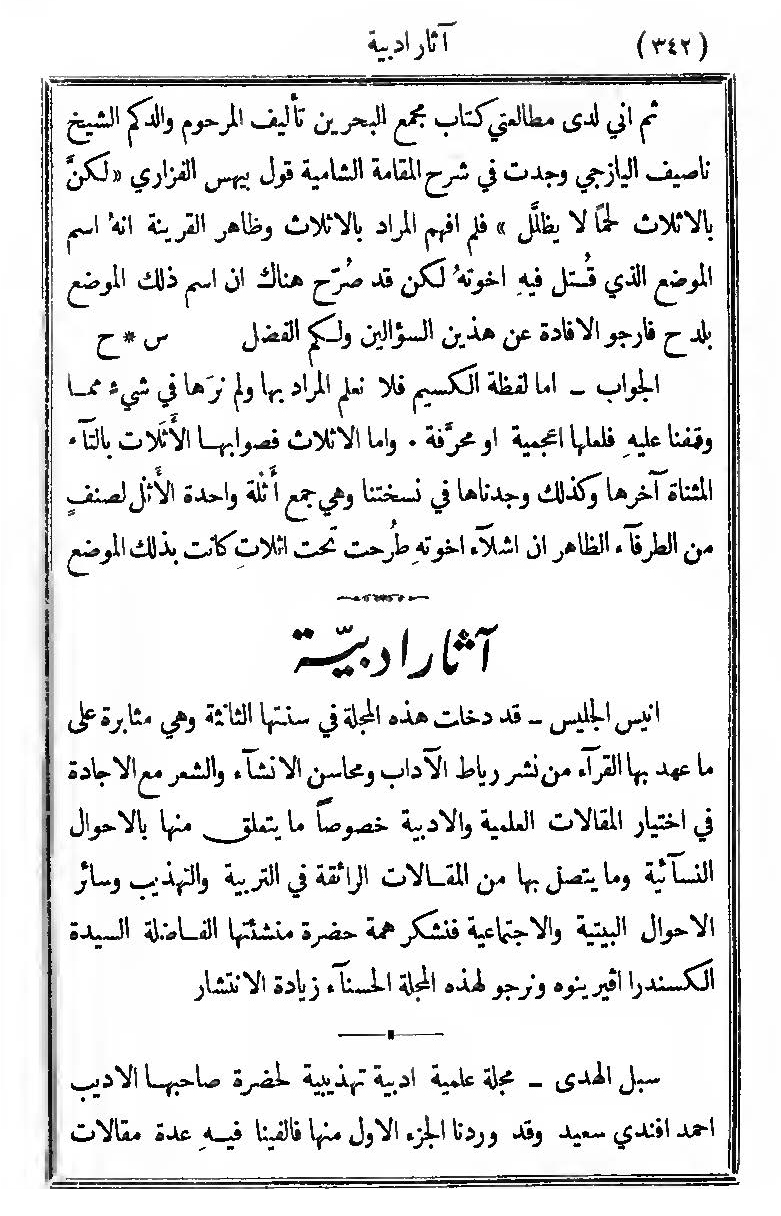 (٣٤٢) آثار ادبية
ثم اني لدى مطالعتي كتاب مجمع البحرين تأليف المرحوم والدكم الشيخ
ناصيف اليازجي وجدت في شرح المقامة الشامية قول بيهس الفزاري «لكنَّ
بالاثلاث لحمًا لا يظلَّل» فلم افهم المراد بالاثلاث وظاهر القرينة انهُ اسم
الموضع الذي قُتل فيهِ اخوتهُ لكن قد صُرّح هناك ان اسم ذلك الموضع
بلدح فارجو الافادة عن هذين السؤالين ولكم الفضل س * ح
الجواب – اما لفظة الكسيم فلا نعلم المراد بها ولم نرَها في شيءٍ مما
وقفنا عليهِ فلعلها اعجمية او محرَّفة . واما الاثلاث فصوابها الأَثَلات بالتآء
المثناة آخرها وكذلك وجدناها في نسختنا وهي جمع أَثْلة واحدة الأَثْل لصنفٍ
من الطرفآء الظاهر ان اشلآء اخوتهِ طُرحت تحت اثلاتٍ كانت بذلك الموضع
آثار ادبيّة
انيس الجليس – قد دخلت هذه المجلة في سنتها الثالثة وهي مثابرة على
ما عهد بها القرآء من نشر رياط الآداب ومحاسن الانشآء والشعر مع الاجادة
في اختيار المقالات العلمية والادبية خصوصاً ما يتعلق منها بالاحوال
النسآئية وما يتصل بها من المقالات الرائقة في التربية والتهذيب وسائر
الاحوال البيتية والاجتماعية فنشكر همة حضرة منشئتها الفاضلة السيدة
الكسندرا افيرينوه ونرجو لهذه المجلة الحسنآء زيادة الانتشار
سبل الهدى – مجلة علمية ادبية تهذيبية لحضرة صاحبها الاديب
احمد افندي سعيد وقد وردنا الجزء الاول منها فالفينا فيهِ عدة مقالات